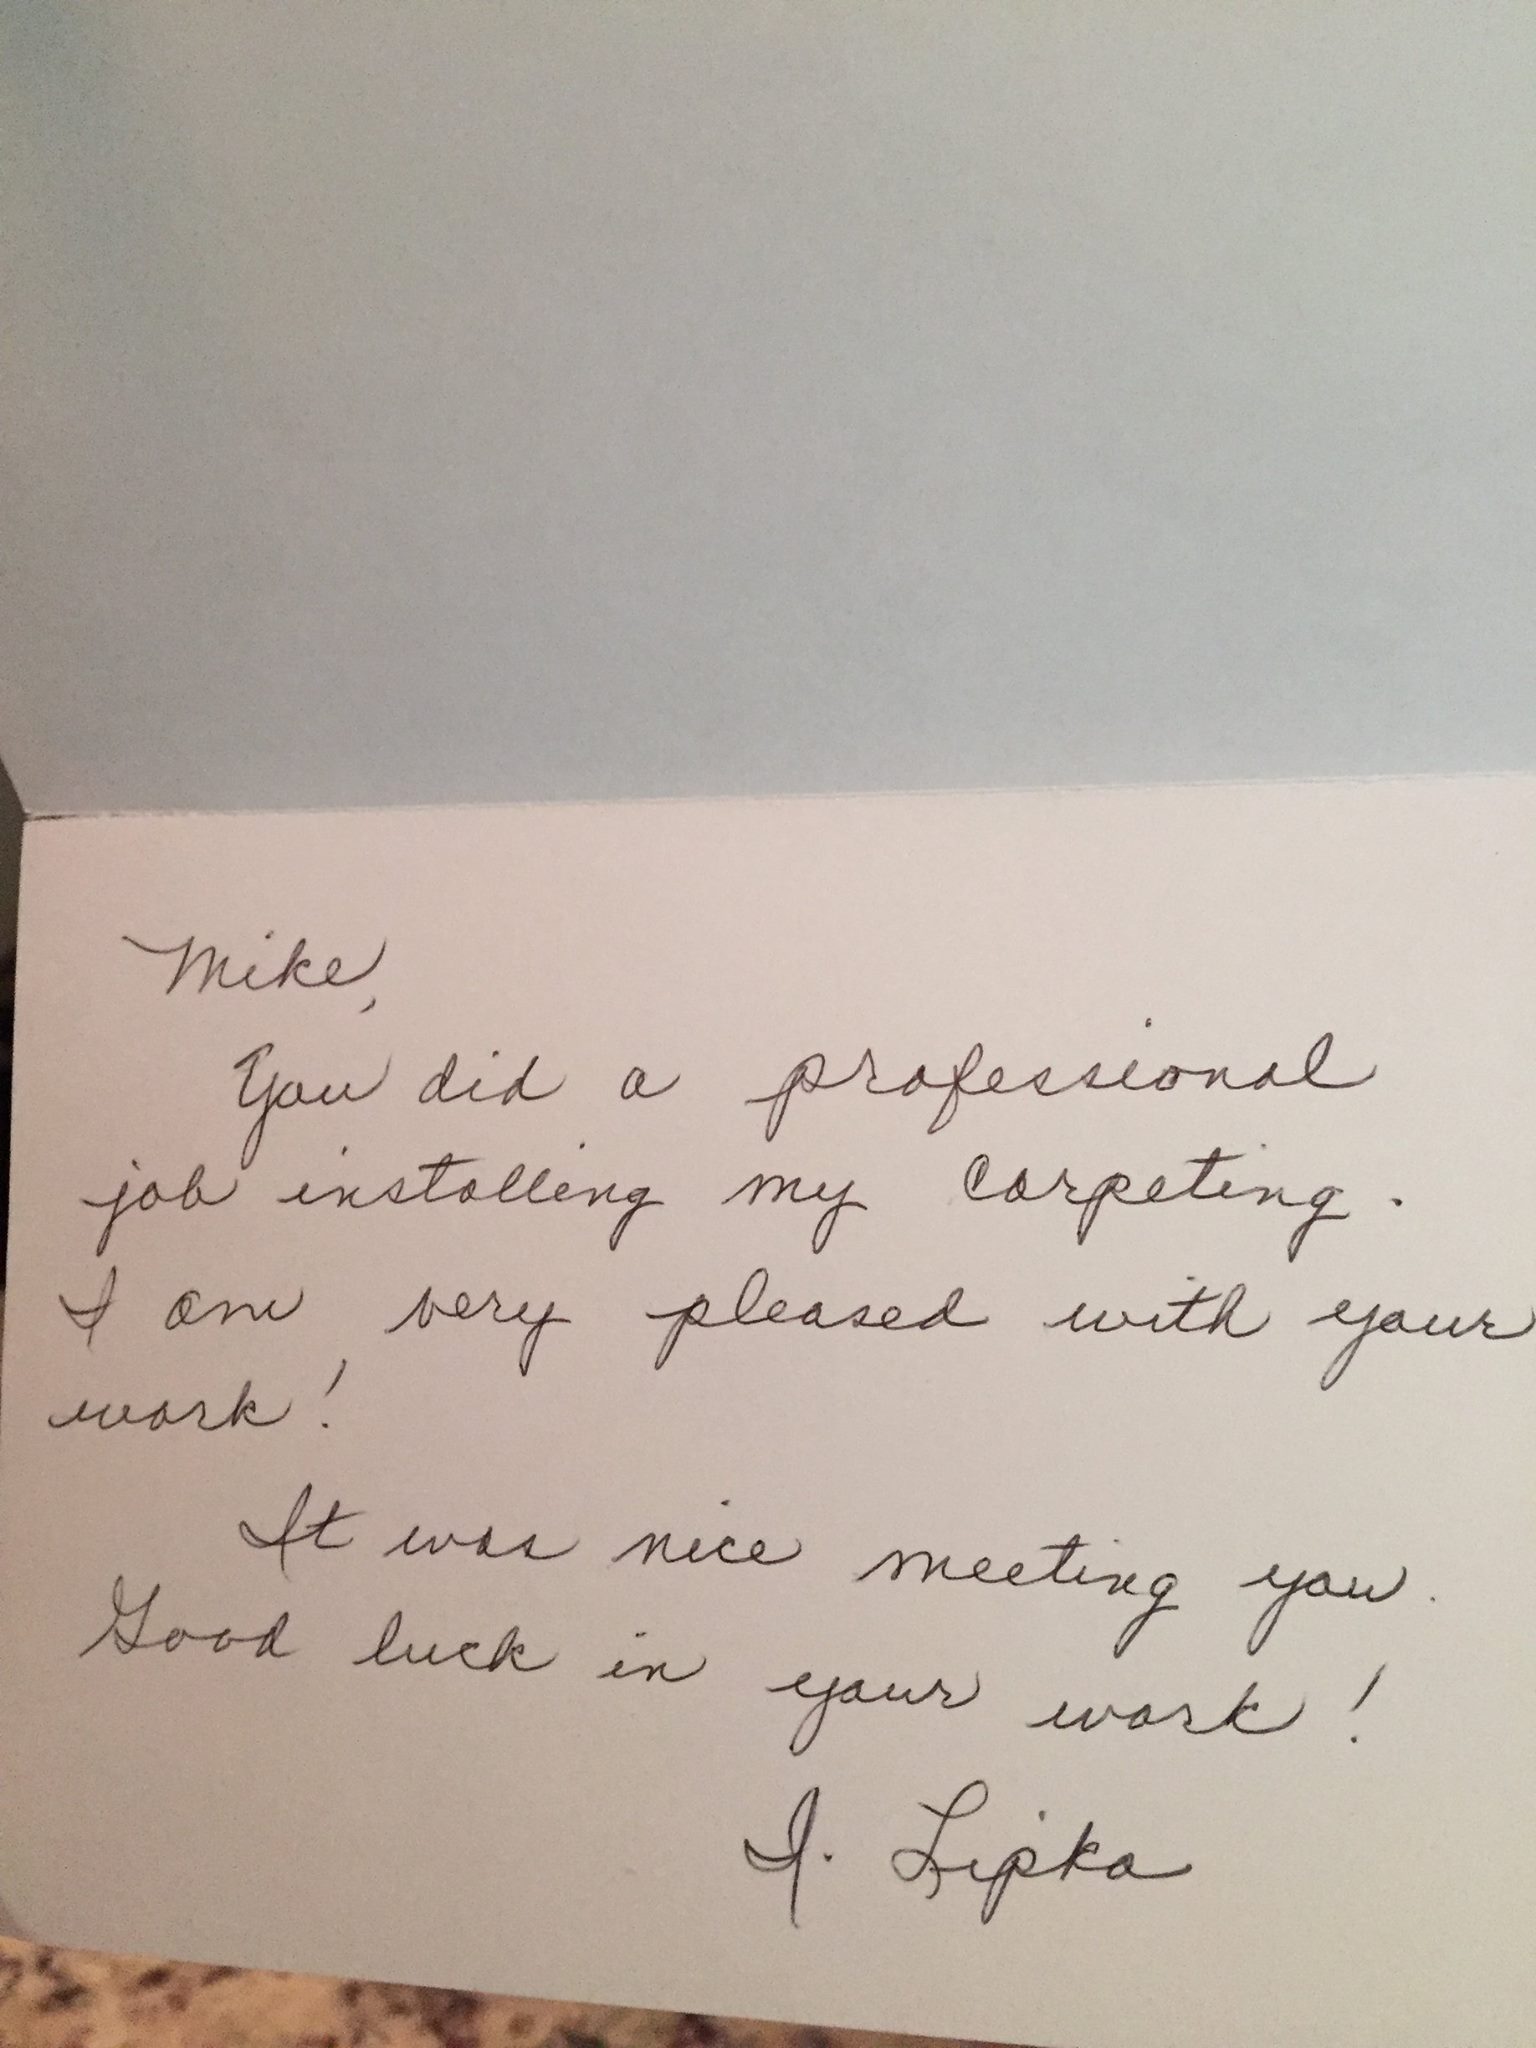 Mike,
You did a professional
job installing my carpeting.
I am very pleased with your
work!
It was nice meeting you.
Good luck in your work!
I. Lipka